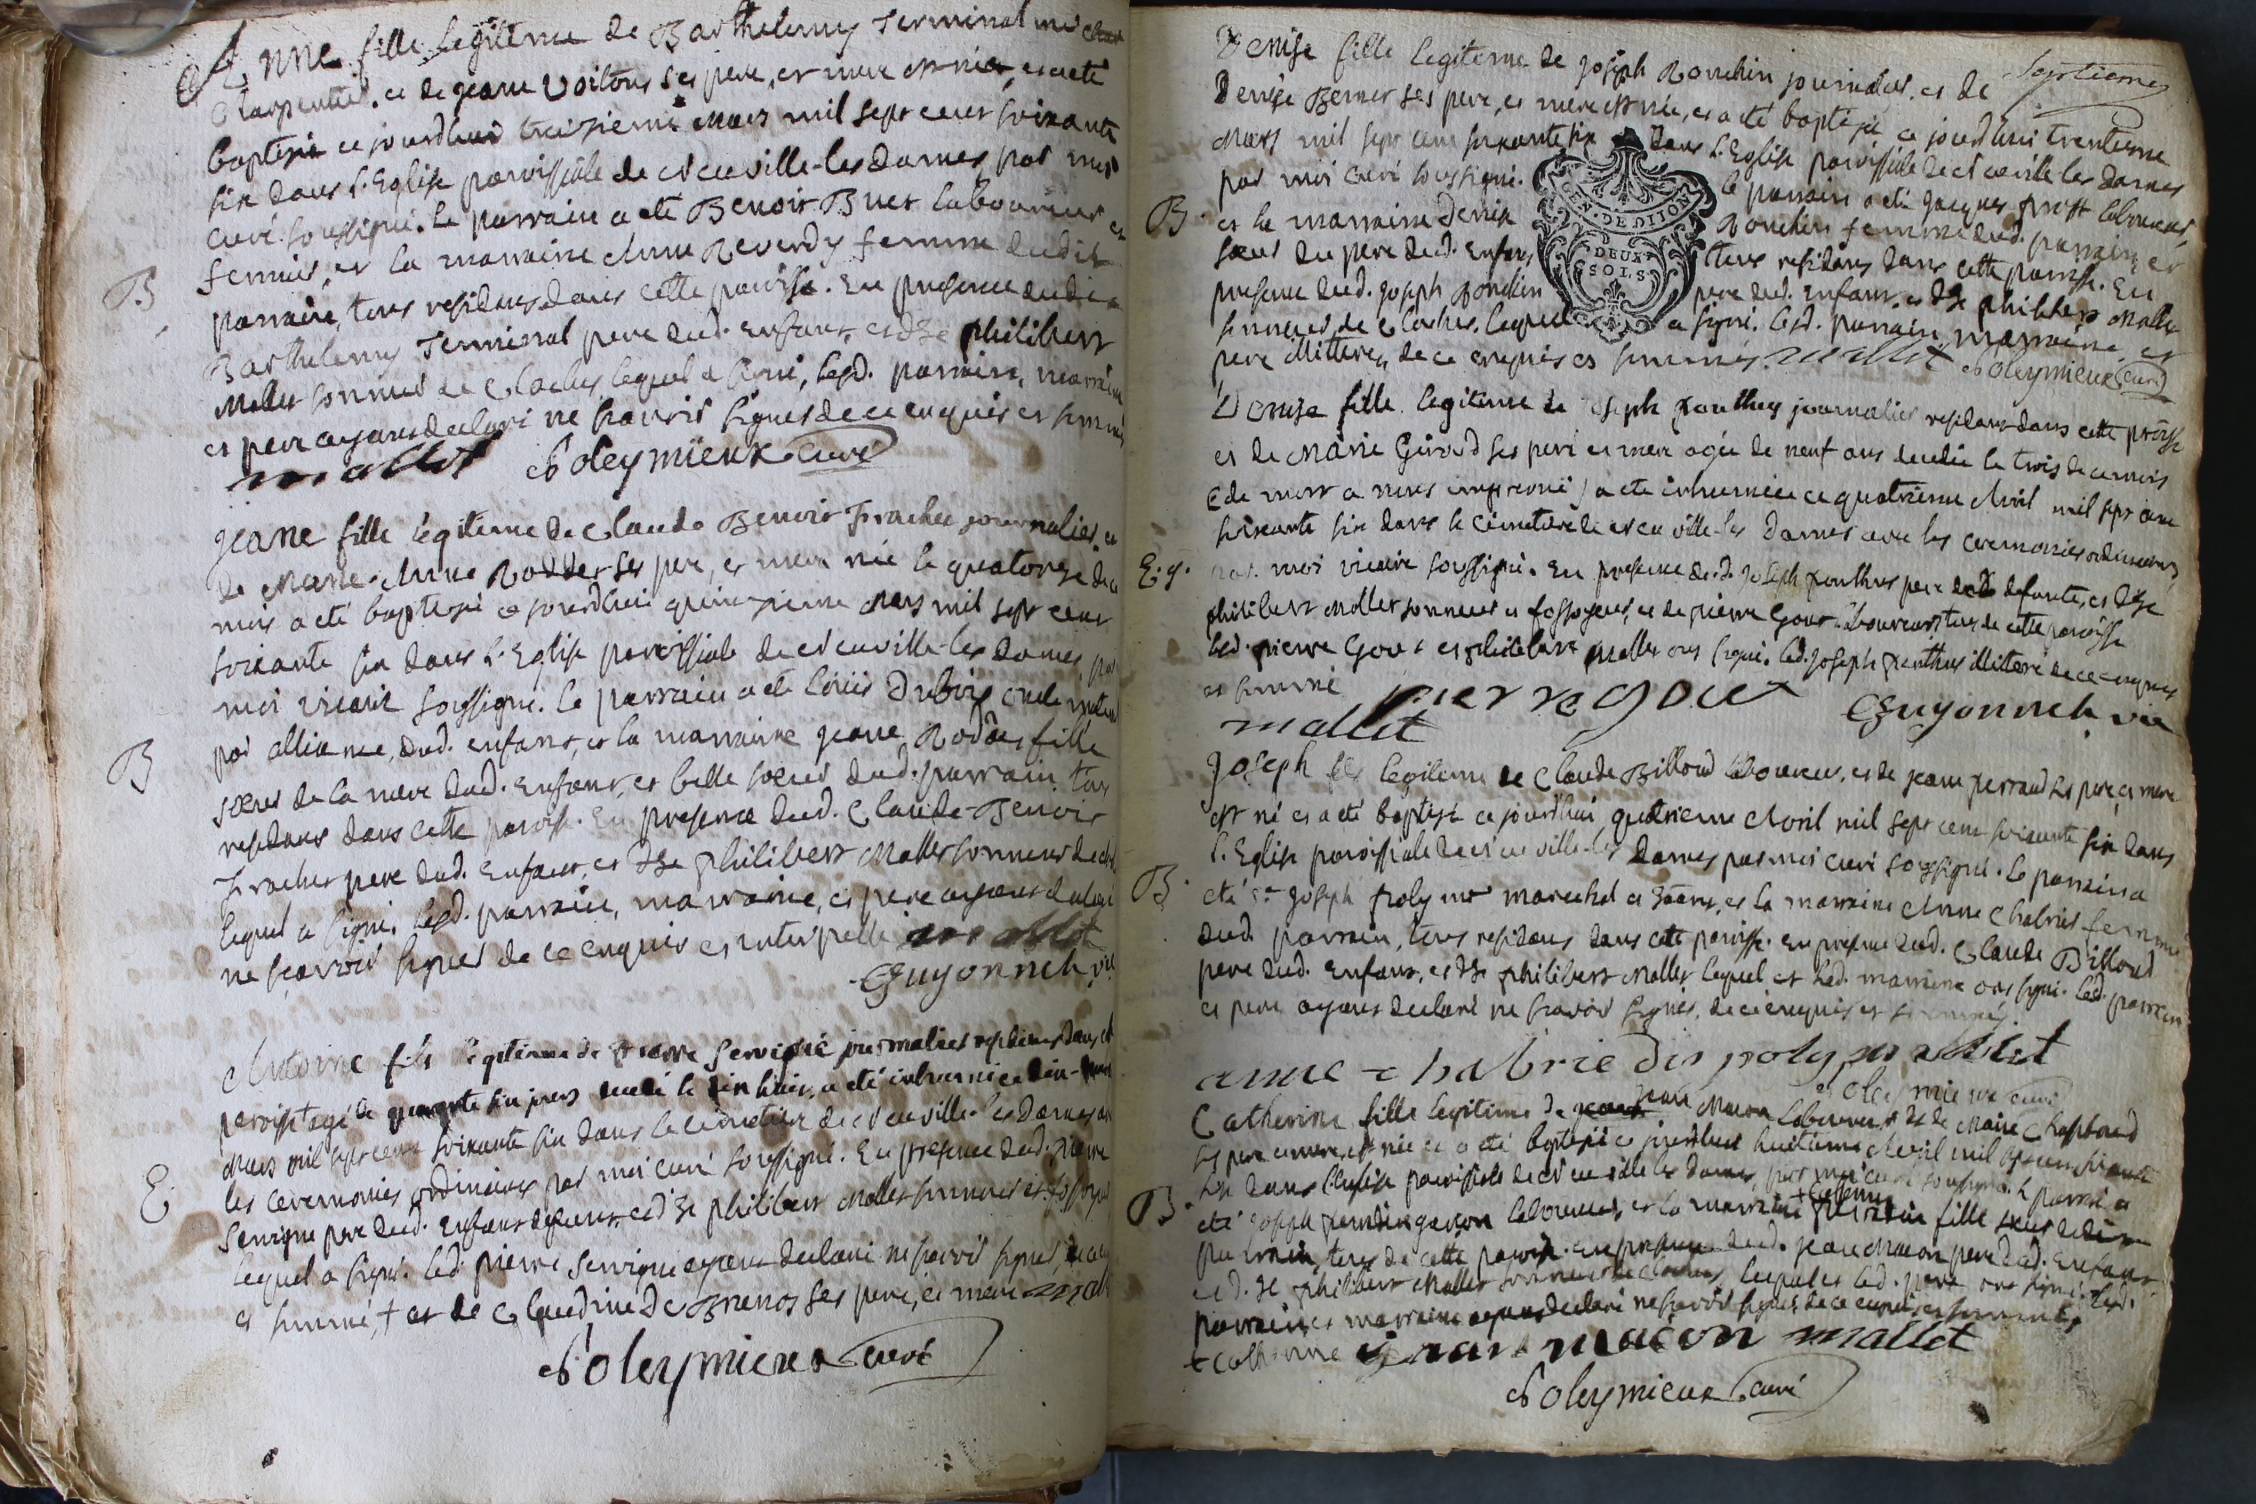 Anne fille legitime de Barthelemy Terminal me
Charpentier, et de jeane Voitous ses pere, et mere est née, et a eté
baptisée ce jourdhui treizieme Mars mil sept cent soixante
six dans l'Eglise paroissiale de Neuville-les Dames, par moi
curé soussigné. le parrain a eté Benoit Buet laboureur et
fermier, et la marraine Anne Reverdy femme dudit
parrain, tous residans dans cette paroisse. En presence dudit
Barthelemy Terminal pere dud. enfant, et de Philibert
Mallet sonneur de cloches, lequel a signé, lesd. parrain, marraine
et pere ayans declaré ne scavoir signer de ce enquis et sommés
mallet Soleymieux curé
B
jeane fille legitime de Claude Benoit Frachet journalier, et
de Marie-Anne Rodet ses pere, et mere née le quatorze de ce
mois a eté baptisée ce jourdhui quinzieme Mars mil sept cent
soixante six dans l'Eglise paroissiale de Neuville-les Dames, par
moi vicaire soussigné. le parrain a eté Louis Dubois oncle
par alliance, dud. enfant, et la marraine jeane Rodet fille
soeur de la mere dud. Enfant, et belle soeur dud. parrain tous
residans dans cette paroisse. En presence dud. Claude-Benoit
Frachet pere dud. Enfant, et de philibert Mallet sonneur de
lequel a signé. lesd. parrain, marraine, et pere ayans declaré
ne scavoir signer de ce enquis et interpellé mallet
Guyonnet vic
B
Antoine fils legitime de pierre Servigne journalier residans dans
paroisse agé de six jours decedé le hier, a eté inhumé ce
Mars mil sept cent soixante six dans le cimetiere de Neuville-les Dames avec
les ceremonies ordinaires par moi curé soussigné. En presence dud. pierre
Servigne pere dud. Enfant defunt, et de philibert Mallet sonneur et fossoyeur
lequel a signé. led. pierre Servigne ayant declaré ne scavoir signer, de ce
et sommé, + et de Claudine De Brenos ses pere, et mere
E
Soleymieux curé
Denise fille legitime de joseph Ronchin journalier, et de
Septieme
Denise Bernet ses pere, et mere est née, et a eté baptisée ce jourdhui trentieme
Mars mil sept cent soixante six dans l'Eglise paroissiale de Neuville les Dames
GEN. DE DIJON
DEUX
SOLS
par moi curé soussigné. le parrain a eté jacques laboureur,
B
et la marraine Denise Ronchin femme dud. parrain et
soeur du pere dud. Enfant tous residans dans cette paroisse. En
presence dud. joseph Ronchin pere dud. Enfant, et de philibert Mallet
sonneur de cloches, lequel a signé. lesd. parrain, marraine, et
pere illitterés, de ce enquis et sommés. mallet Soleymieux curé
Denise fille legitime de joseph journalier residant dans cette proisse
et de Marie Giroud ses pere et mere agée de neuf ans decedée le trois de ce mois
(de mort a nous ) a eté inhumée ce quatrieme Avril mil sept cent
soixante six dans le cimetiere de Neuville-les Dames avec les ceremonies ordinaires
E. g.
par moi vicaire soussigné. En presence de d. joseph pere de la defunte, et de
philibert Mallet sonneur et fossoyeur, et de pierre Gour laboureur, tous de cette paroisse
led. pierre et philibert Mallet ont signé. led. joseph illitteré de ce enquis
et sommé pierre
mallet Guyonnet vic
joseph fils legitime de Claude Billoud laboureur, et de jeane perraud ses pere, et mere
est né et a eté baptisé ce jourdhui quatrieme Avril mil sept cent soixante six dans
l'Eglise paroissiale de Neuville-les Dames par moi curé soussigné. le parrain a
B
eté Sr joseph me marechal, et la marraine Anne Chabrié femme
dud. parrain, tous residans dans cette paroisse. En presence dud. Claude Billoud
pere dud. Enfant, et de philibert Mallet, lequel et lad. marraine ont signé. led. parrain
et pere ayans declaré ne scavoir signer, de ce enquis et sommés.
anne chabrié mallet
Soleymieux curé
Catherine fille legitime de jean Macon laboureur, et de Marie
ses pere et mere, est née et a eté baptisée ce jourdhui huitieme Avril mil sept cent soixante
six dans l'Eglise paroissiale de Neuville les Dames, par moi curé soussigné. le parrain a
B
eté joseph garçon laboureur, et la marraine + fille soeur dudit
parrain, tous de cette paroisse. En presence dud. jean Macon pere dud. Enfant
et de philibert Mallet sonneur de cloches, lequel et led. pere ont signé. lesd.
parrain, et marraine ayans declaré ne scavoir signer, de ce enquis et sommés
+ Catherine jean macon mallet
Soleymieux curé